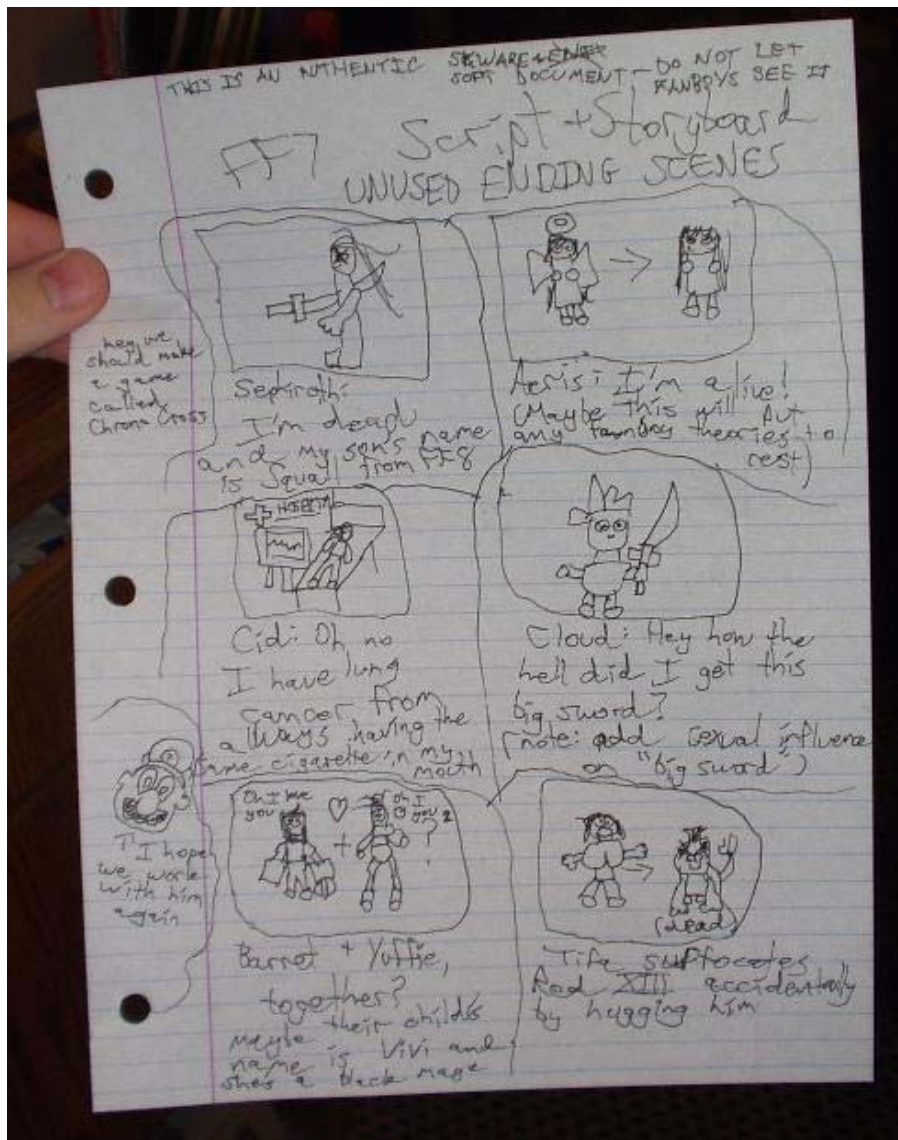 THIS IS AN AUTHENTIC SKWARE ENER
SOFT DOCUMENT - DO NOT LET
FANBOYS SEE IT
FF7 Script + Storyboard
UNUSED ENDING SCENES
hey we
should make
a game
called
Chrono Cross
Sephiroth:
I'm dead
and my son's name
is Squall from FF8
Aeris: I'm alive!
(Maybe this will put
any fannboy theories to
rest)
HOSPITAL
Cid: Oh no
I have lung
cancer from
always having the
same cigarette in my
mouth
Cloud: Hey how the
hell did I get this
big sword?
(note: add sexual influence
on "big sword")
↑ I hope
we work
with him
again
Oh I love
you
Oh I
you 2
Barret + Yuffie,
together?
Maybe their childs
name is Vivi and
shes a black mage
(dead)
Tifa suffocates
Red XIII accidentally
by hugging him